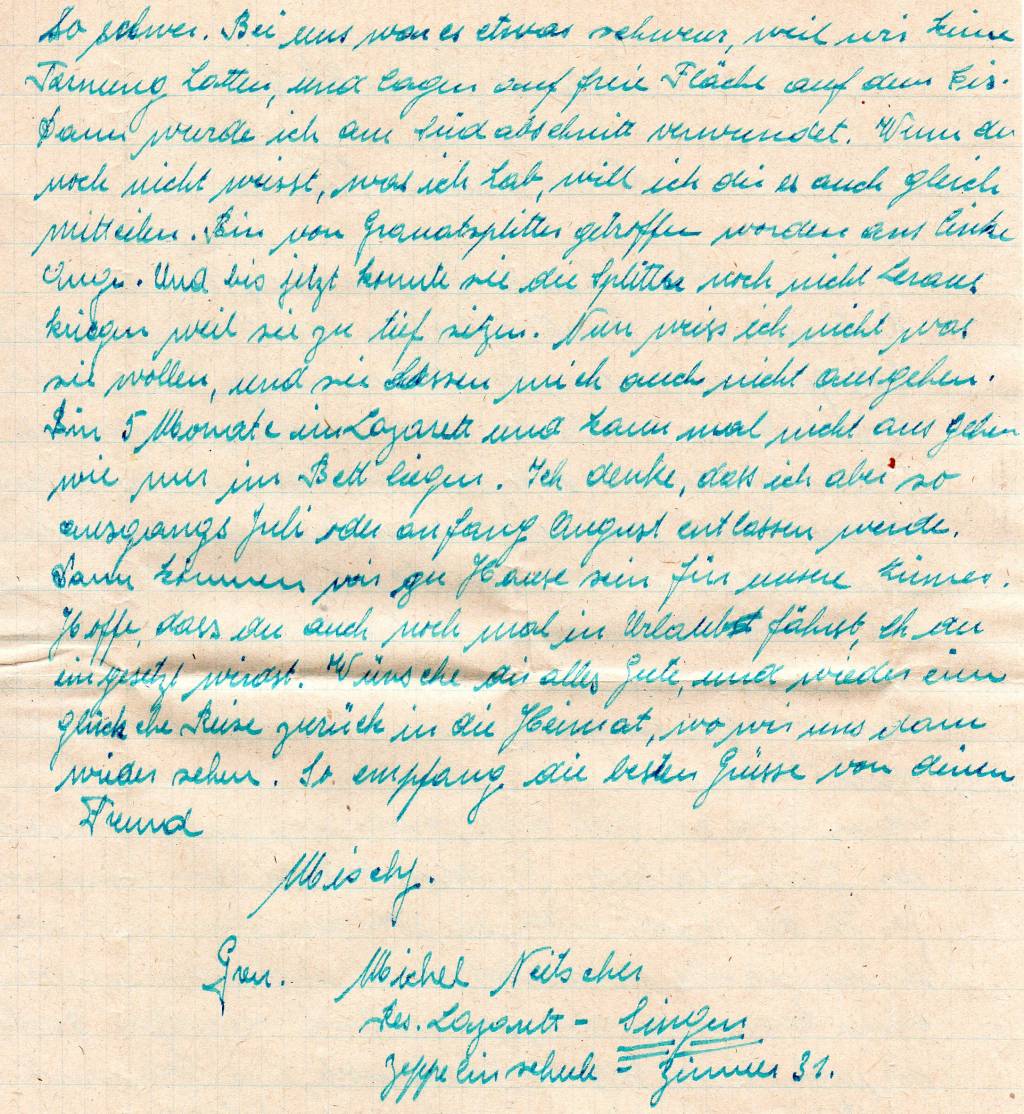 so schwer. Bei uns war es etwas schwerer, weil wir keine
Tarnung hatten, und lagen auf freie Fläche auf dem Eis.
Dann wurde ich am Südabschnitt verwundet. Wenn du
noch nicht weisst, was ich hab, will ich dir es auch gleich
mitteilen. Bin von Granatsplitter getroffen worden ans linke
Auge. Und bis jetzt konnte sie die Splitter noch nicht heraus
kriegen weil sie zu tief sitzen. Nun weiss ich nicht was
sie wollen, und sie lassen mich auch nicht ausgehen.
Bin 5 Monate im Lazarett und kann mal nicht aus gehen
wie nur im Bett liegen. Ich denke, dass ich aber so
ausgangs Juli oder anfang August entlassen werde.
Dann können wir zu Hause sein für unsere Kirmes.
Hoffe, dass du auch noch mal in Urlaub fährst, eh du
eingesetzt wirdst. Wünsche dir alles Gute, und wieder eine
glückche Reise zurück in die Heimat, wo wir uns dann
wieder sehen. So empfang die besten Grüsse von deinen
Freund
Mischy.
Gren. Michel Neitscher
Res. Lazarett - Singen
Zeppelinschule - Zimmer 31.